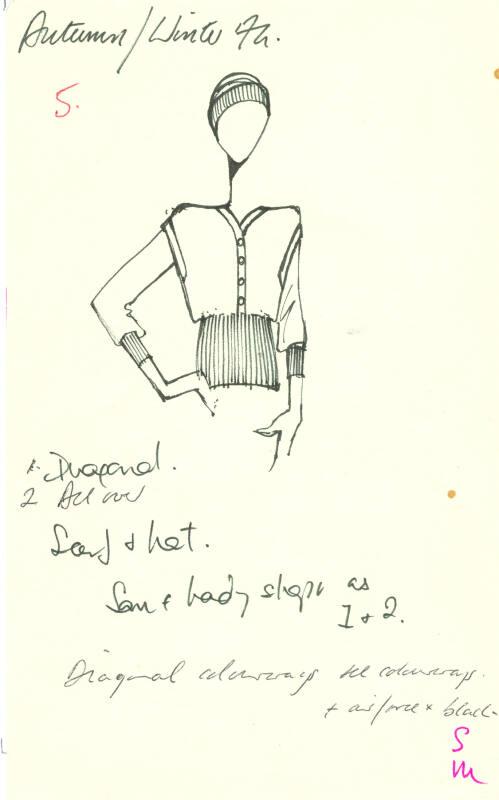 Autumn/Winter
5.
1. Diagonal.
2 All over
Scarf & hat.
Same body shape as
1 & 2.
Diagonal colourways see colourways.
+ airforce + black
S
M